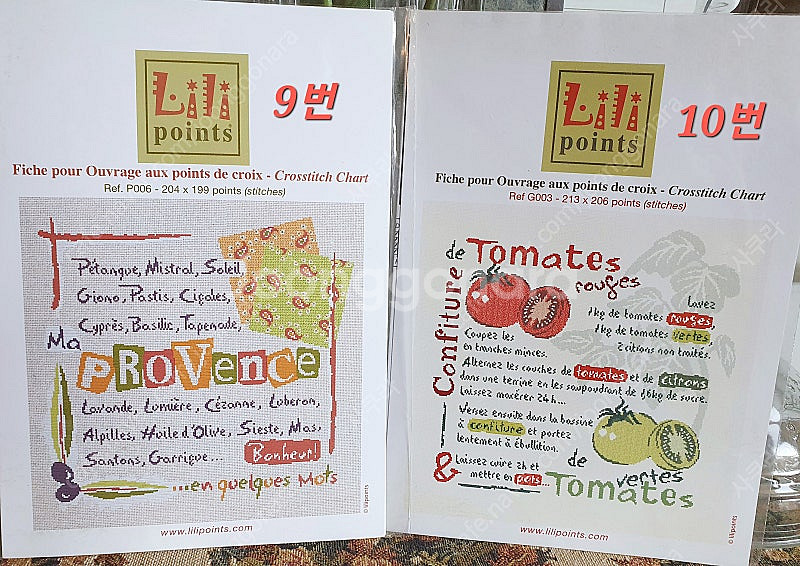 Lili
points
9번
Fiche pour Ouvrage aux points de croix - Crosstitch Chart
Ref. P006 - 204 x 199 points (stitches)
Pétanque, Mistral, Soleil,
Giono, Pastis, Cigales,
Cyprès, Basilic, Tapenade,
Ma
PROVENCE
Lavande, Lumière, Cézanne, Luberon,
Alpilles, Huile d'Olive, Sieste, Mas,
Santons, Garrigue... Bonheur!
...en quelques Mots
www.lilipoints.com
© lilipoints
Lili
points
10번
Fiche pour Ouvrage aux points de croix - Crosstitch Chart
Ref G003 - 213 x 206 points (stitches)
Confiture
de Tomates
rouges
Lavez
1kg de tomates rouges,
1kg de tomates vertes
2 citrons non traités.
Coupez les
en tranches minces.
Alternez les couches de tomates et de citrons
dans une terrine en les saupoudrant de 1,6kg de sucre.
Laissez macérer 24h...
Versez ensuite dans la bassine
à confiture et portez
lentement à ébullition.
& Laissez cuire 2h et
mettre en pots...
de
vertes
Tomates
www.lilipoints.com
© lilipoints